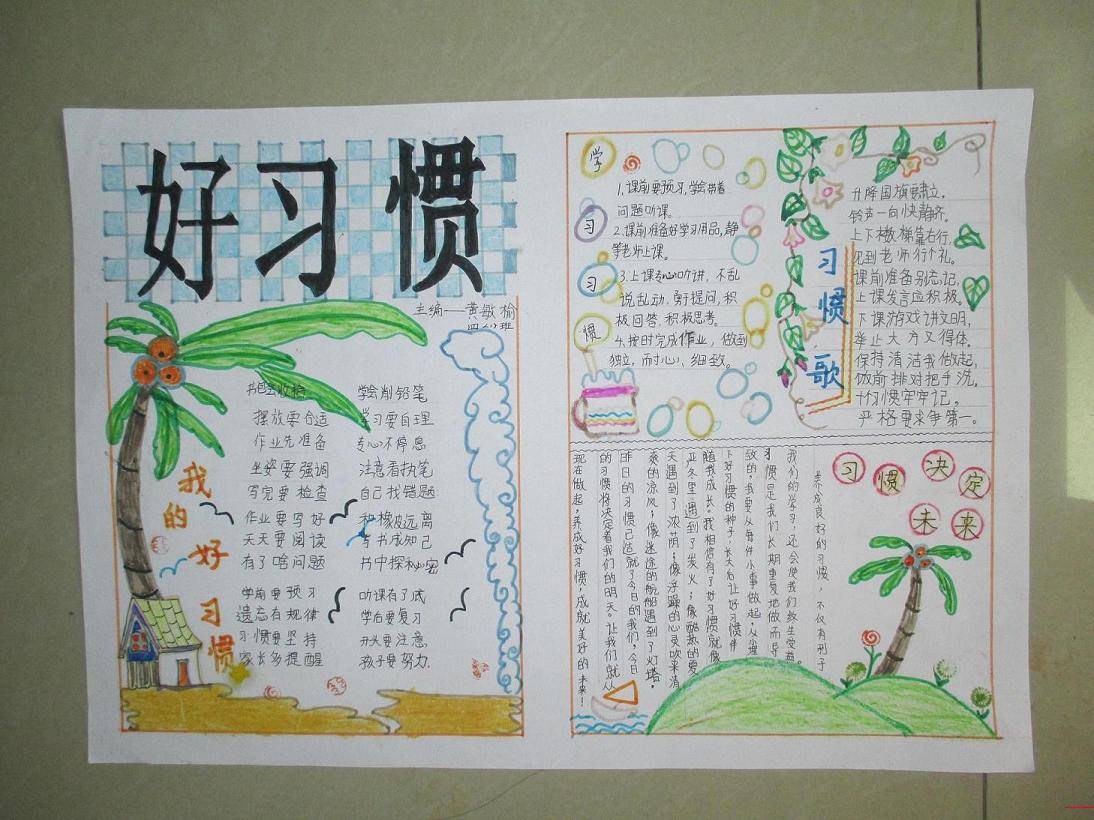 好习惯
主编——黄敏榆
我的好习惯
学会削铅笔
摆放要合适
学习要自理
作业先准备
专心不停息
坐姿要强调
注意看执笔
写完要检查
自己找错题
作业要写好
和橡皮远离
天天要阅读
与书成知己
有了啥问题
书中探秘密
学前要预习
听课有了底
遗忘有规律
学后要复习
习惯要坚持
开头要注意
家长多提醒
孩子要努力
学习习惯
1.课前要预习,学会带着
问题听课。
2.课前准备好学习用品,静
等老师上课。
3.上课专心听讲,不乱
说乱动,勇于提问,积
极回答,积极思考。
4.按时完成作业,做到
独立,耐心,细致。
习惯歌
升降国旗要肃立,
铃声一向快静齐,
上下楼梯靠右行,
见到老师行个礼。
课前准备别忘记,
上课发言应积极。
下课游戏讲文明,
举止大方又得体。
保持清洁我做起,
饭前排对把手洗,
十个习惯牢牢记,
严格要求争第一。
习惯决定
未来
养成良好的习惯,不仅有利于
我们的学习,还会使我们终生受益。
习惯是我们长期重复地做而导
致的,我要从每件小事做起,从小埋
下好习惯的种子,长大后让好习惯伴
随我成长。我相信有了好习惯就像
严冬里遇到了炭火;像酷热的夏
天遇到了浓荫;像浮躁的心灵吹来清
爽的凉风;像迷途的航船遇到了灯塔。
昨日的习惯已造就了今日的我们,今日
的习惯将决定着我们的明天。让我们就从
现在做起,养成好习惯,成就美好的未来!